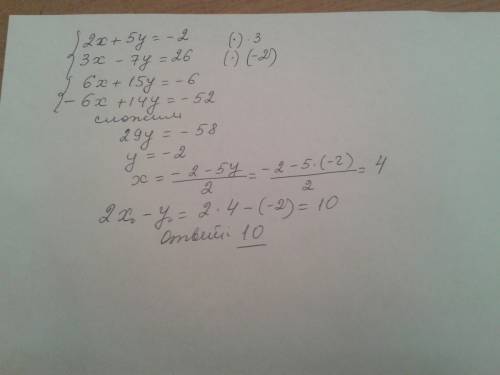 2x + 5y = -2 (·) · 3
3x - 7y = 26 (·) (-2)
6x + 15y = -6
-6x + 14y = -52
сложим
29y = -58
y = -2
x = -2 - 5y / 2 = -2 - 5·(-2) / 2 = 4
2x₀ - y₀ = 2 · 4 - (-2) = 10
Ответ: 10